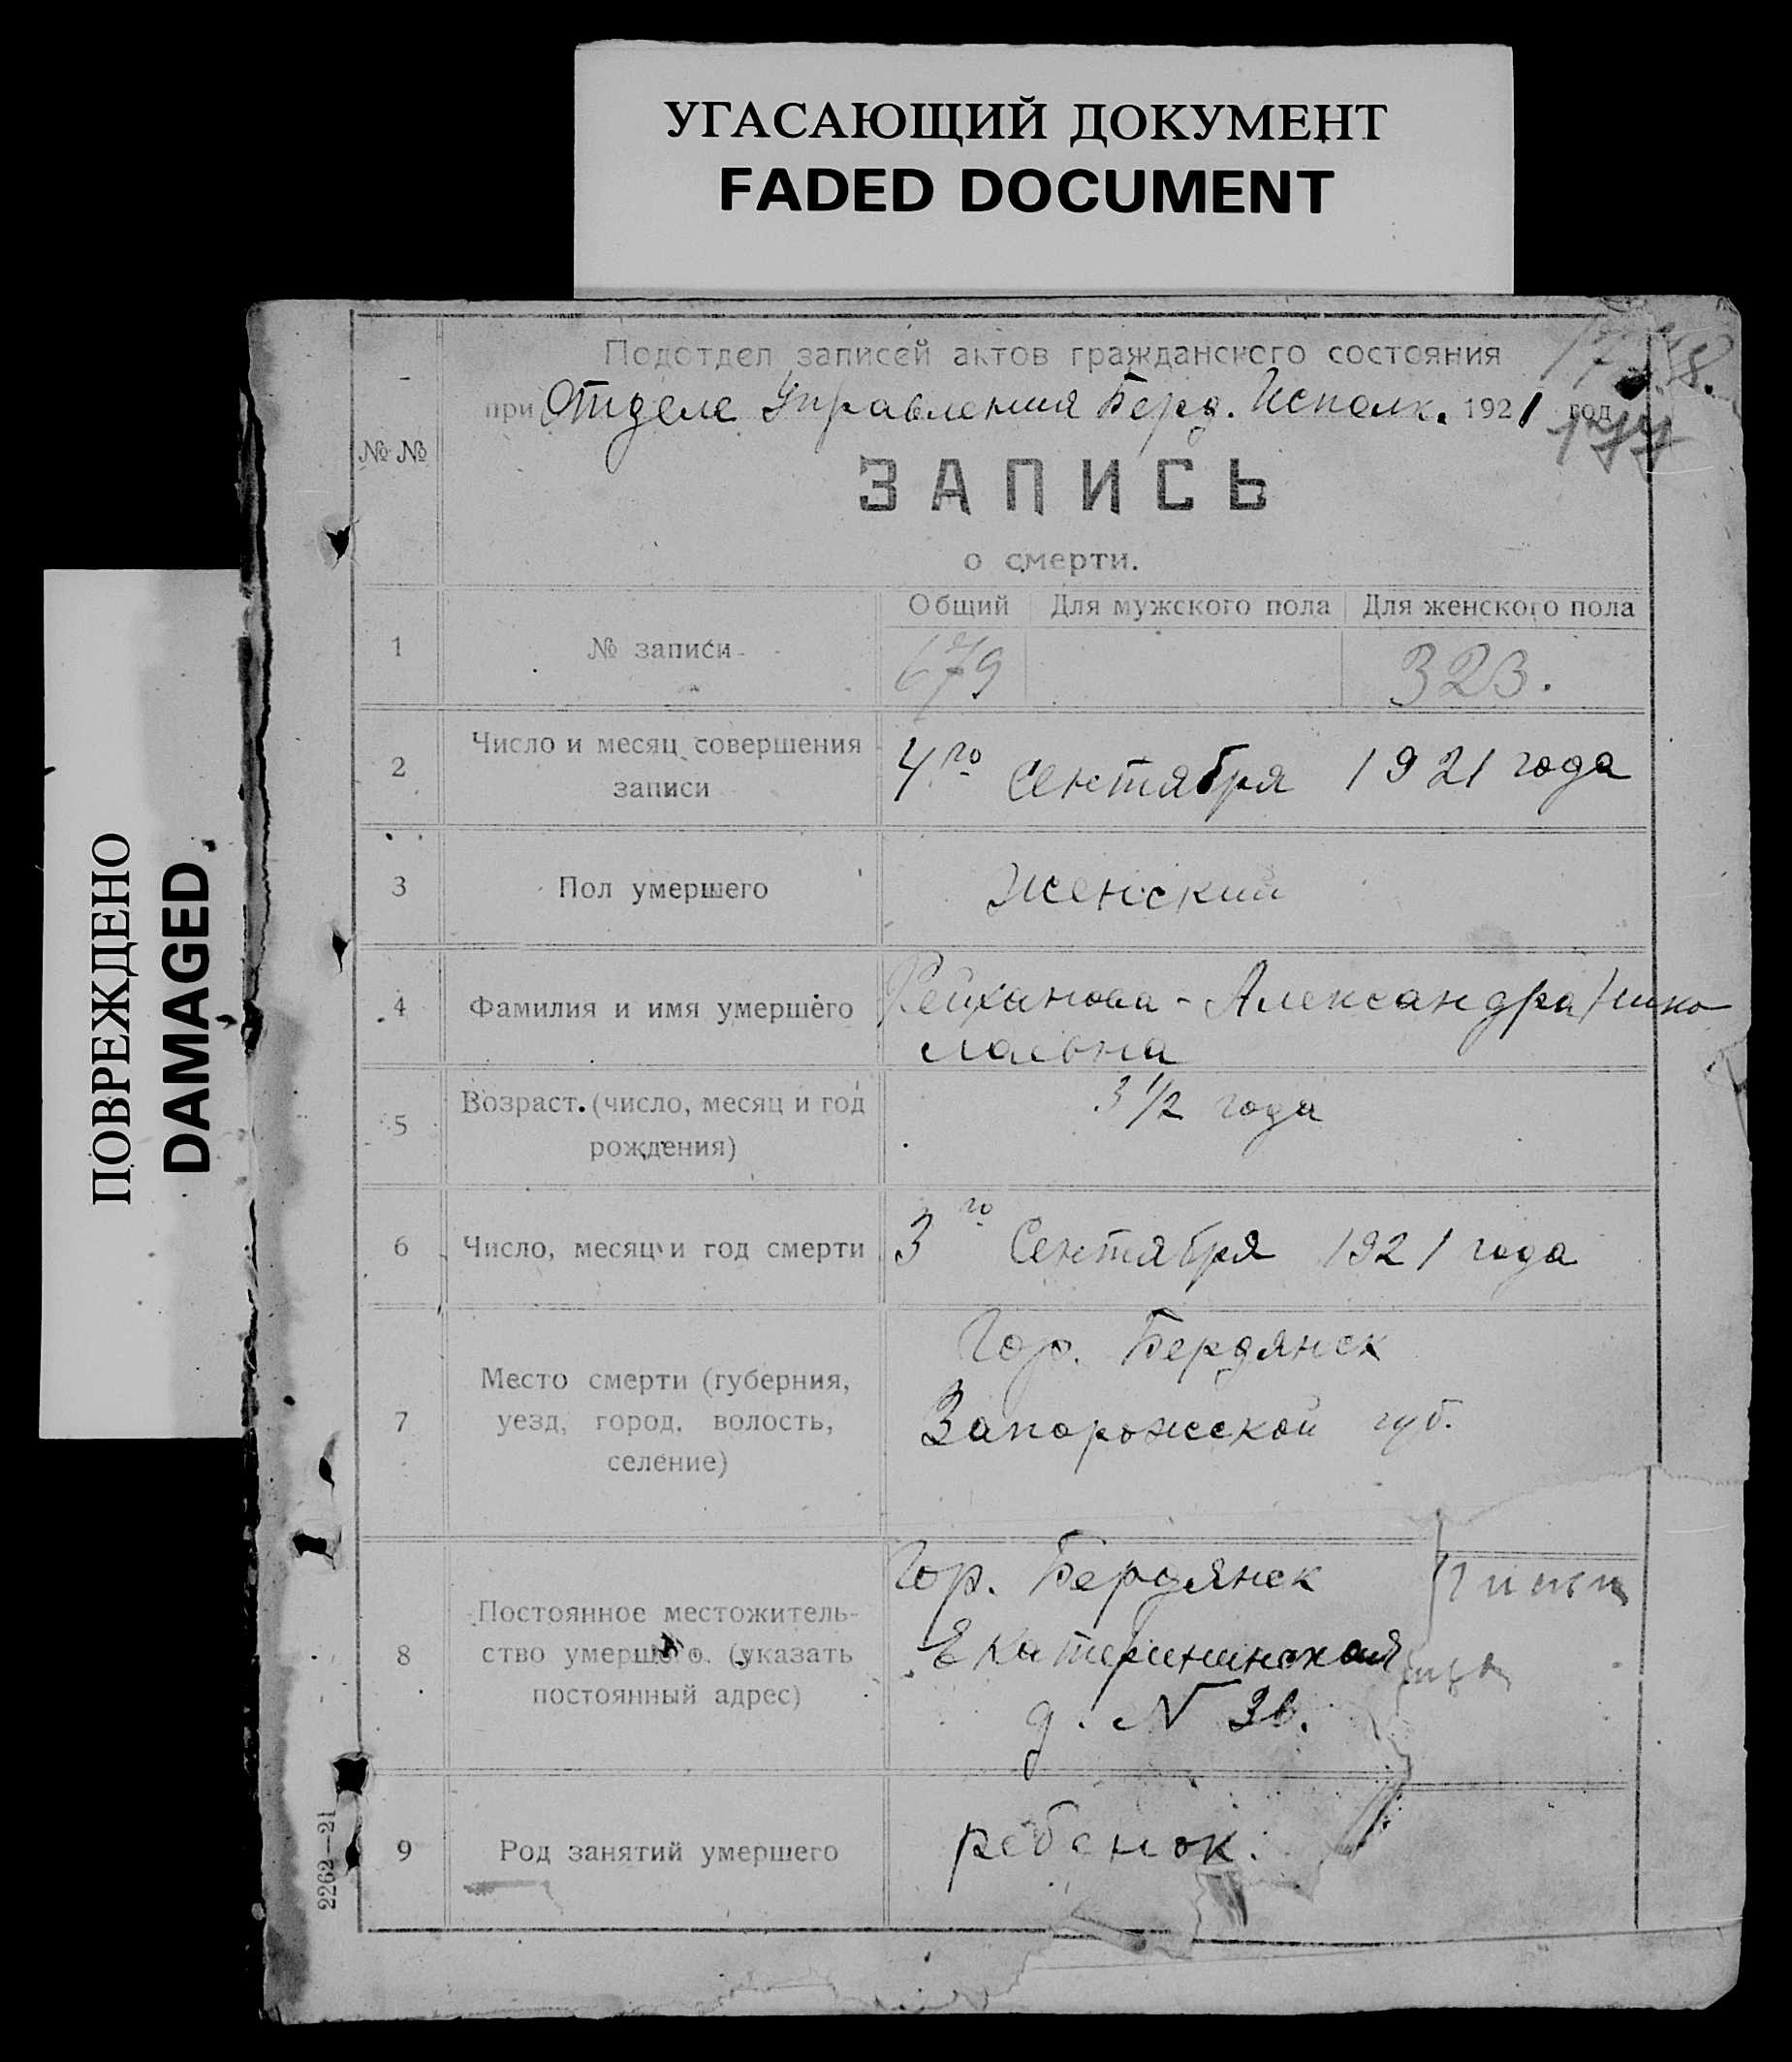 УГАСАЮЩИЙ ДОКУМЕНТ
FADED DOCUMENT
ПОВРЕЖДЕНО
DAMAGED
Подотдел записей актов гражданского состояния
при Отделе Управления Берд. Исполк. 1921 год
177
№ №
ЗАПИСЬ
о смерти.
Общий Для мужского пола Для женского пола
1 № записи 679 323.
2 Число и месяц совершения записи 4го Сентября 1921 года
3 Пол умершего Женский
4 Фамилия и имя умершего Рейханова - Александра Нико
лаевна
5 Возраст. (число, месяц и год
рождения) 3 1/2 года
6 Число, месяц и год смерти 3го Сентября 1921 года
7 Место смерти (губерния,
уезд, город, волость,
селение)
Гор. Бердянск
Запорожской губ.
8 Постоянное местожитель-
ство умершего. (указать
постоянный адрес)
Гор. Бердянск
Екатерининская
д. N 36.
9 Род занятий умершего ребенок.
2262—21